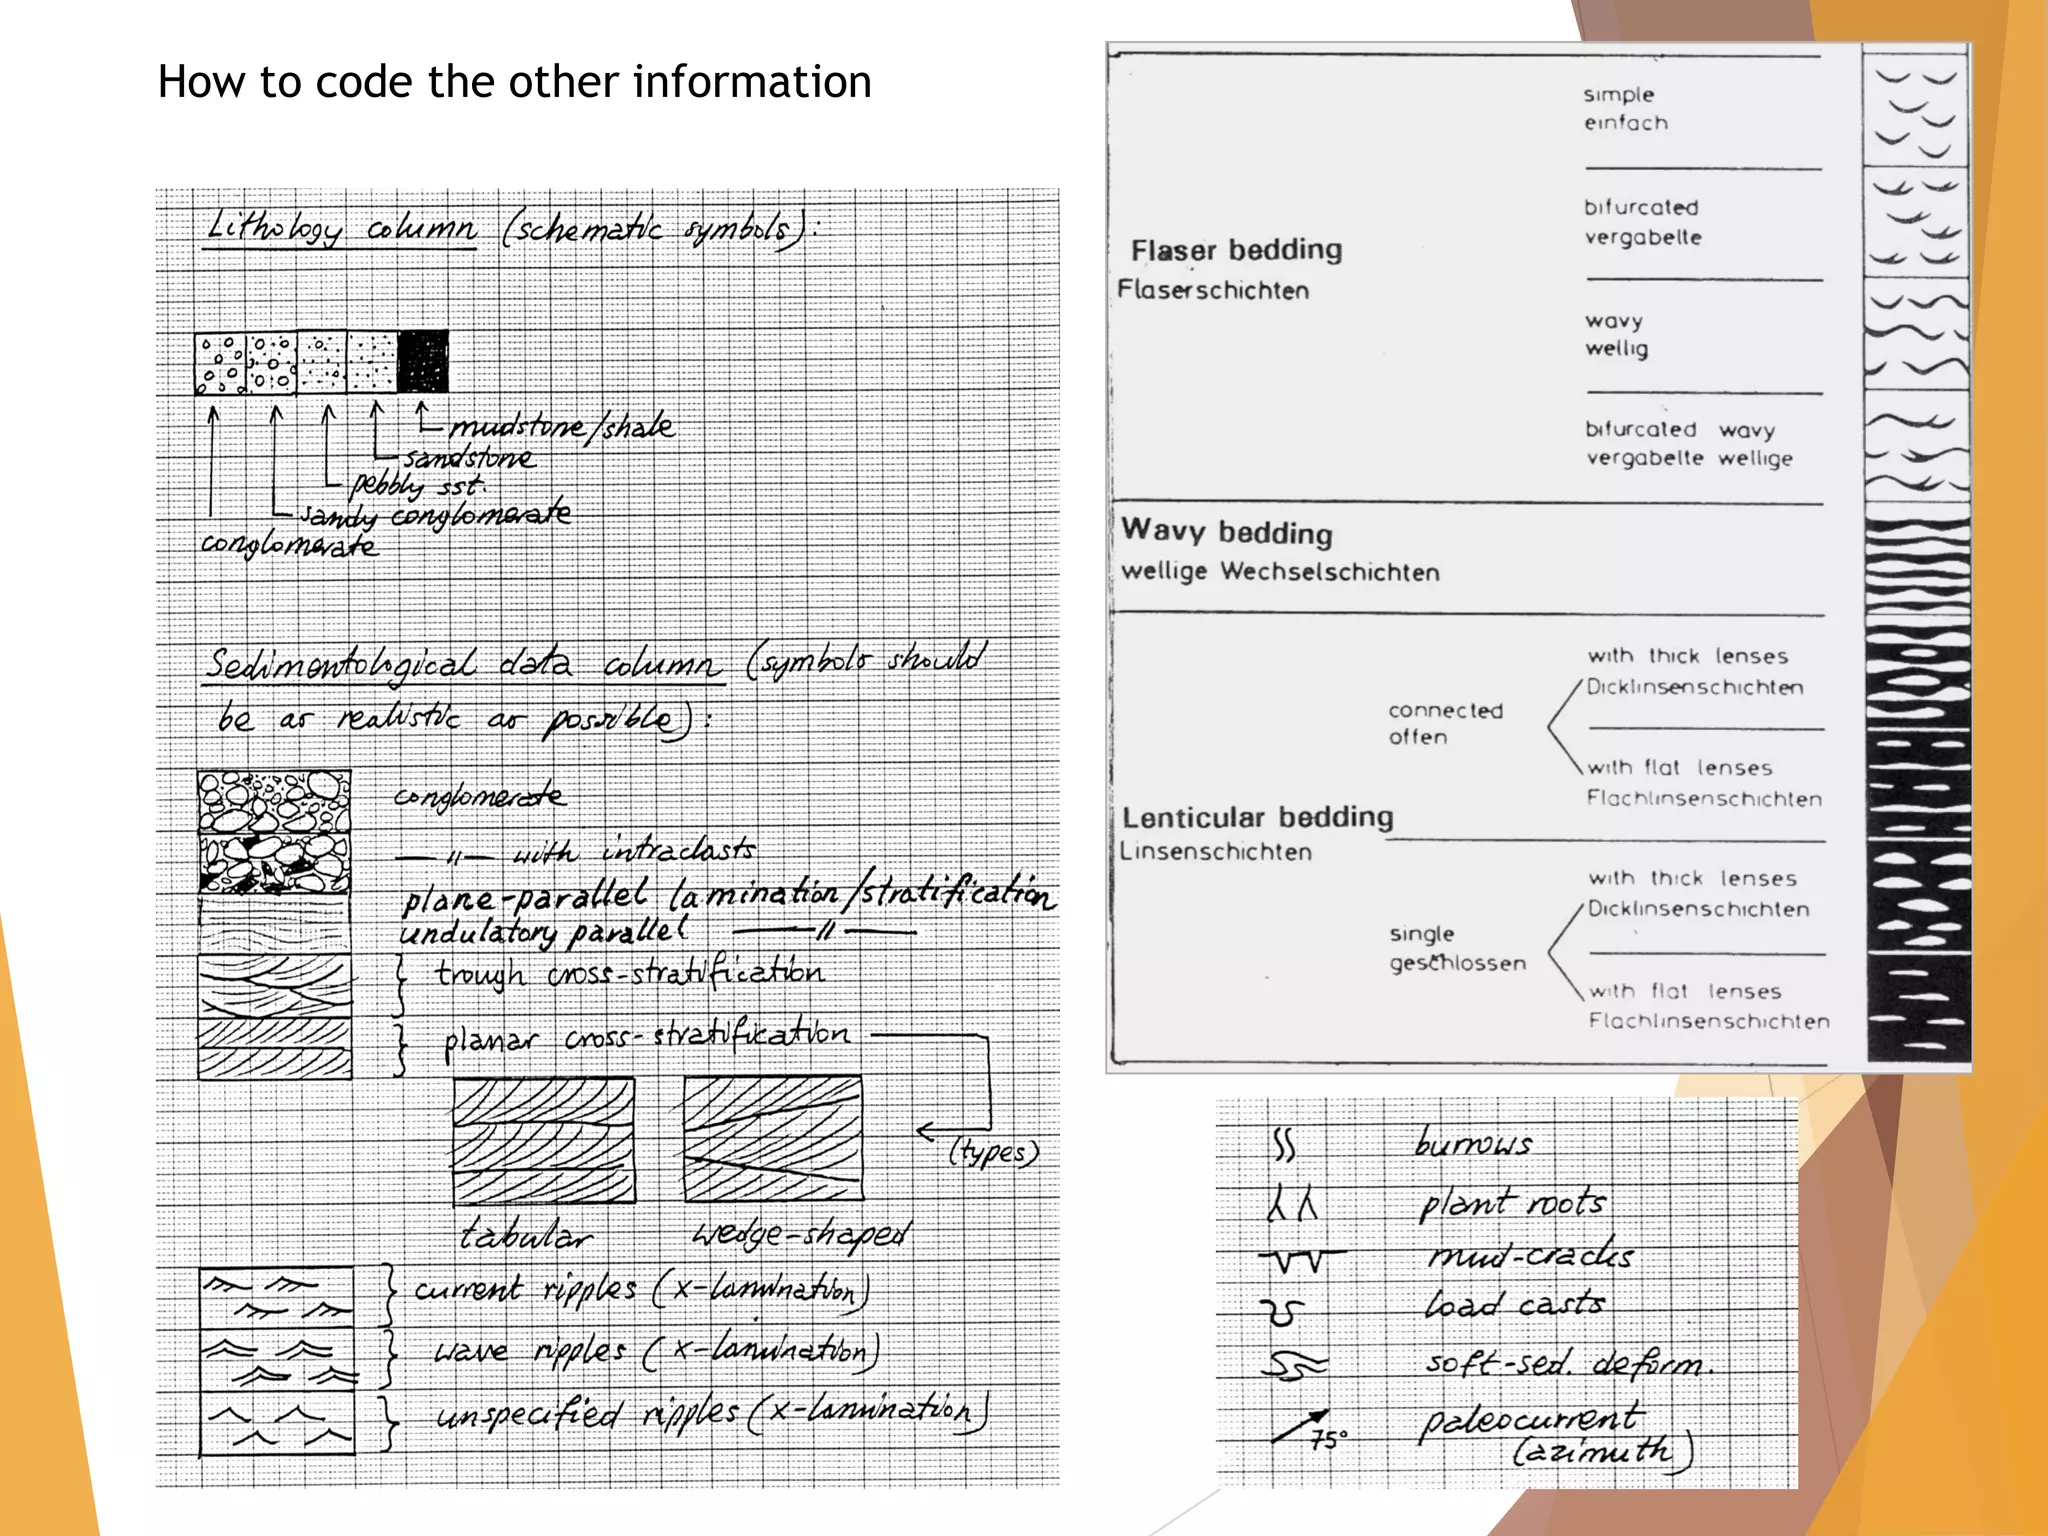 How to code the other information
Lithology column (schematic symbols):
mudstone/shale
sandstone
pebbly sst.
sandy conglomerate
conglomerate
Sedimentological data column (symbols should
be as realistic as possible):
conglomerate
—"— with intraclasts
plane-parallel lamination/stratification
undulatory parallel —"—
trough cross-stratification
planar cross-stratification
(types)
tabular wedge-shaped
current ripples (x-lamination)
wave ripples (x-lamination)
unspecified ripples (x-lamination)
simple
einfach
bifurcated
vergabelte
Flaser bedding
Flaserschichten
wavy
wellig
bifurcated wavy
vergabelte wellige
Wavy bedding
wellige Wechselschichten
with thick lenses
Dicklinsenschichten
connected
offen
with flat lenses
Flachlinsenschichten
Lenticular bedding
Linsenschichten
with thick lenses
Dicklinsenschichten
single
geschlossen
with flat lenses
Flachlinsenschichten
burrows
plant roots
mud-cracks
load casts
soft-sed. deform.
75° paleocurrent
(azimuth)